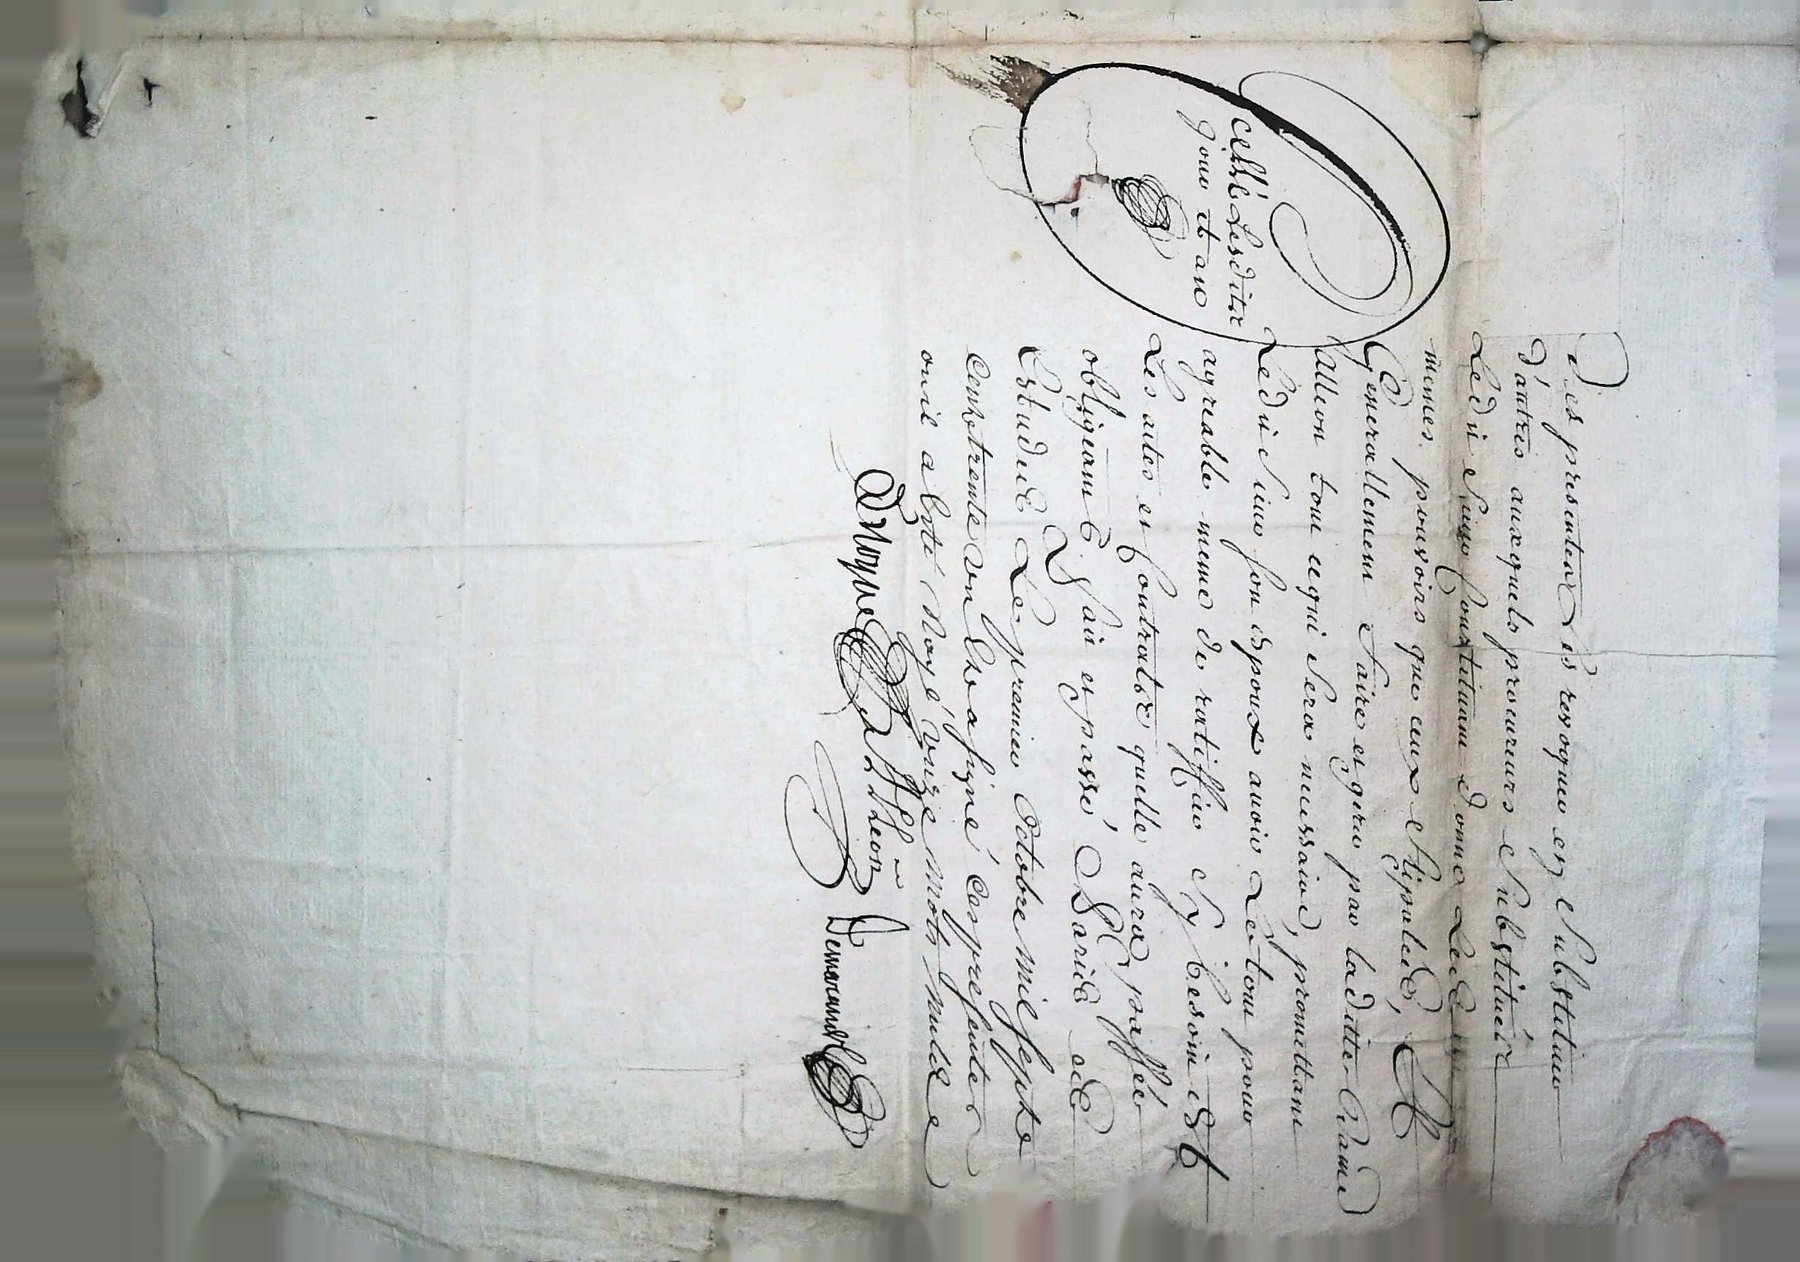 des presentes Les revoquer en Substituer
d'autres auxquels procureurs Substituéz
Ledit Sieur Constituant donne Led
mémes pouvoirs que ceux Stipuléz, Et
Generallement faire et gerer par laditte Dame
tout ce qui Sera necessaire, promettant
Ledit Sieur Son Epoux avoir Le tout pour
agreable meme de ratiffier Sy besoin est
Les actes et Contrats quelle aura passéz
obligeant Fait et passé a Paris ez
Estudes Le premier Octobre mil Sept
Cent trente un Et a signé Ces presentes
ou il a esté Rayé onze mots nuls
Scellé Lesdits
jour et an